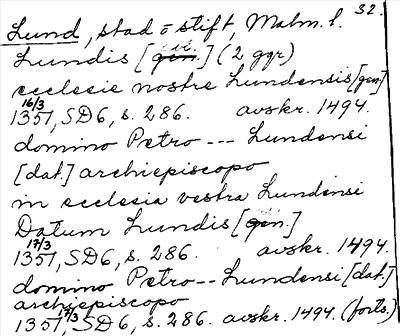 32.
Lund, stad o stift, Malm. l.
Lundis [gen.] (2 ggr)
ecclesie nostre Lundensis [gen]
16/3
1351, SD6, s. 286. avskr. 1494.
domino Petro --- Lundensi
[dat.] archiepiscopo
in ecclesia vestra Lundensi
Datum Lundis [gen.]
17/3
1351, SD6, s. 286. avskr. 1494.
domino Petro-- Lundensi [dat.]
archiepiscopo
17/3
1351, SD6, s. 286. avskr. 1494. (forts.)